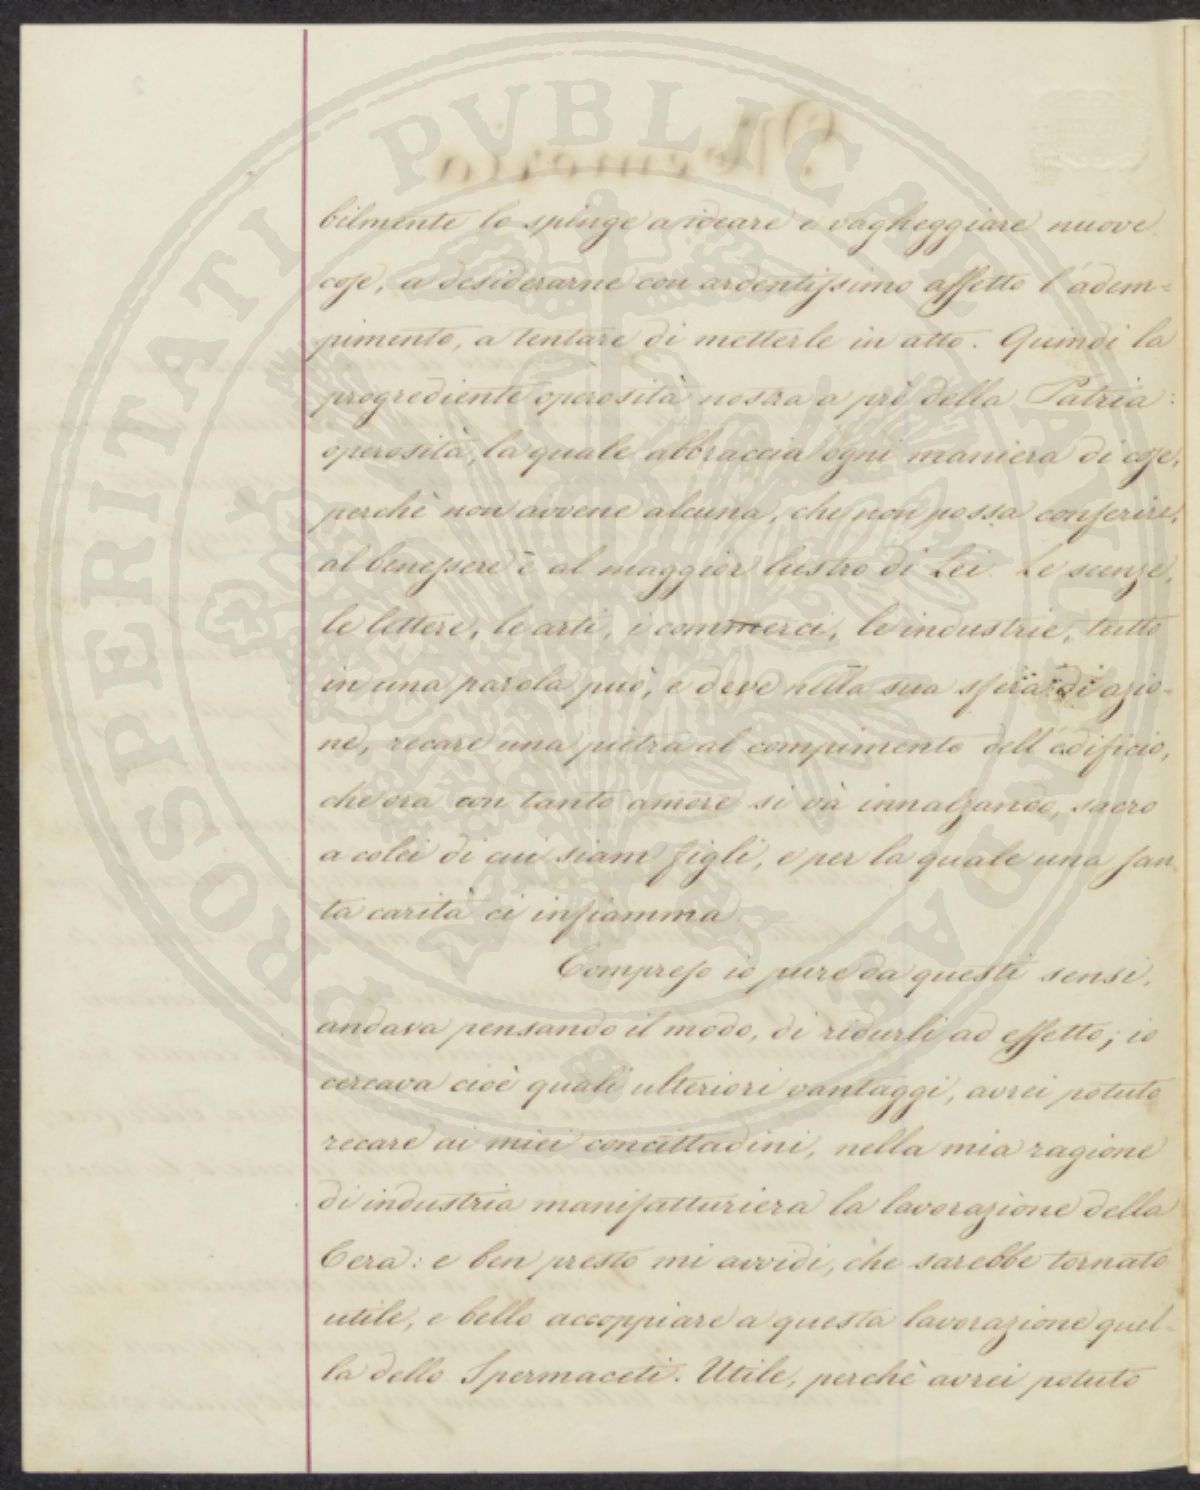 PROSPERITATI PVBLICAE AVGENDAE
bilmente lo spinge a ideare e vagheggiare nuove
cose, a desiderarne con ardentissimo affetto l'adem=
pimento, a tentare di metterle in atto. Quindi la
progrediente operosità nostra a prò della Patria:
operosità, la quale abbraccia ogni maniera di cose,
perchè non avvene alcuna, che non possa conferire,
al benessere è al maggior lustro di Lei. Le scienze,
le lettere, le arti, i commerci, le industrie, tutto
in una parola può, e deve nella sua sfera di azio-
ne, recare una pietra al compimento dell'edificio,
che ora con tanto amore si và innalzando, sacro
a colei di cui siam figli, e per la quale una san
ta carità ci infiamma.
Compreso io pure da questi sensi,
andava pensando il modo, di ridurli ad effetto; io
cercava cioè quali ulteriori vantaggi, avrei potuto
recare ai miei concittadini, nella mia ragione
di industria manifatturiera la lavorazione della
Cera: e ben presto mi avvidi, che sarebbe tornato
utile, e bello accoppiare a questa lavorazione quel-
la dello Spermaceti. Utile, perchè avrei potuto